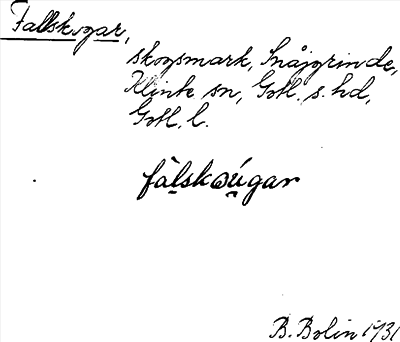 Fallskogar,
skogsmark, Snåjgrinde,
Klinte sn, Gotl. s. hd,
Gotl. l.
fàlskωúgar
B. Bolin 1931